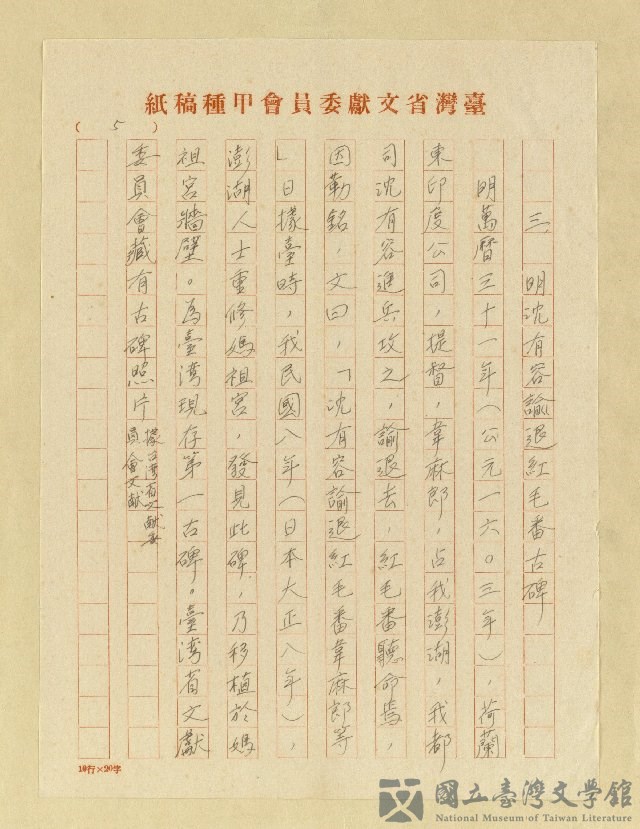 紙稿種甲會員委獻文省灣臺
( 5 )
三 明沈有容諭退紅毛番古碑
明萬曆三十一年(公元一六○三年),荷蘭
東印度公司,提督,韋麻郎,占我澎湖,我都
司沈有容進兵攻之,諭退去,紅毛番聽命焉,
因勒銘,文曰,「沈有容諭退紅毛番韋麻郎等
」日據臺時,我民國八年(日本大正八年),
澎湖人士重修媽祖宮,發見此碑,乃移植於媽
祖宮牆壁。為臺湾現存第一古碑。臺湾省文獻
委員會藏有古碑照片
據台湾省文献委
員會文献
10行×20字
國立臺灣文學館
National Museum of Taiwan Literature